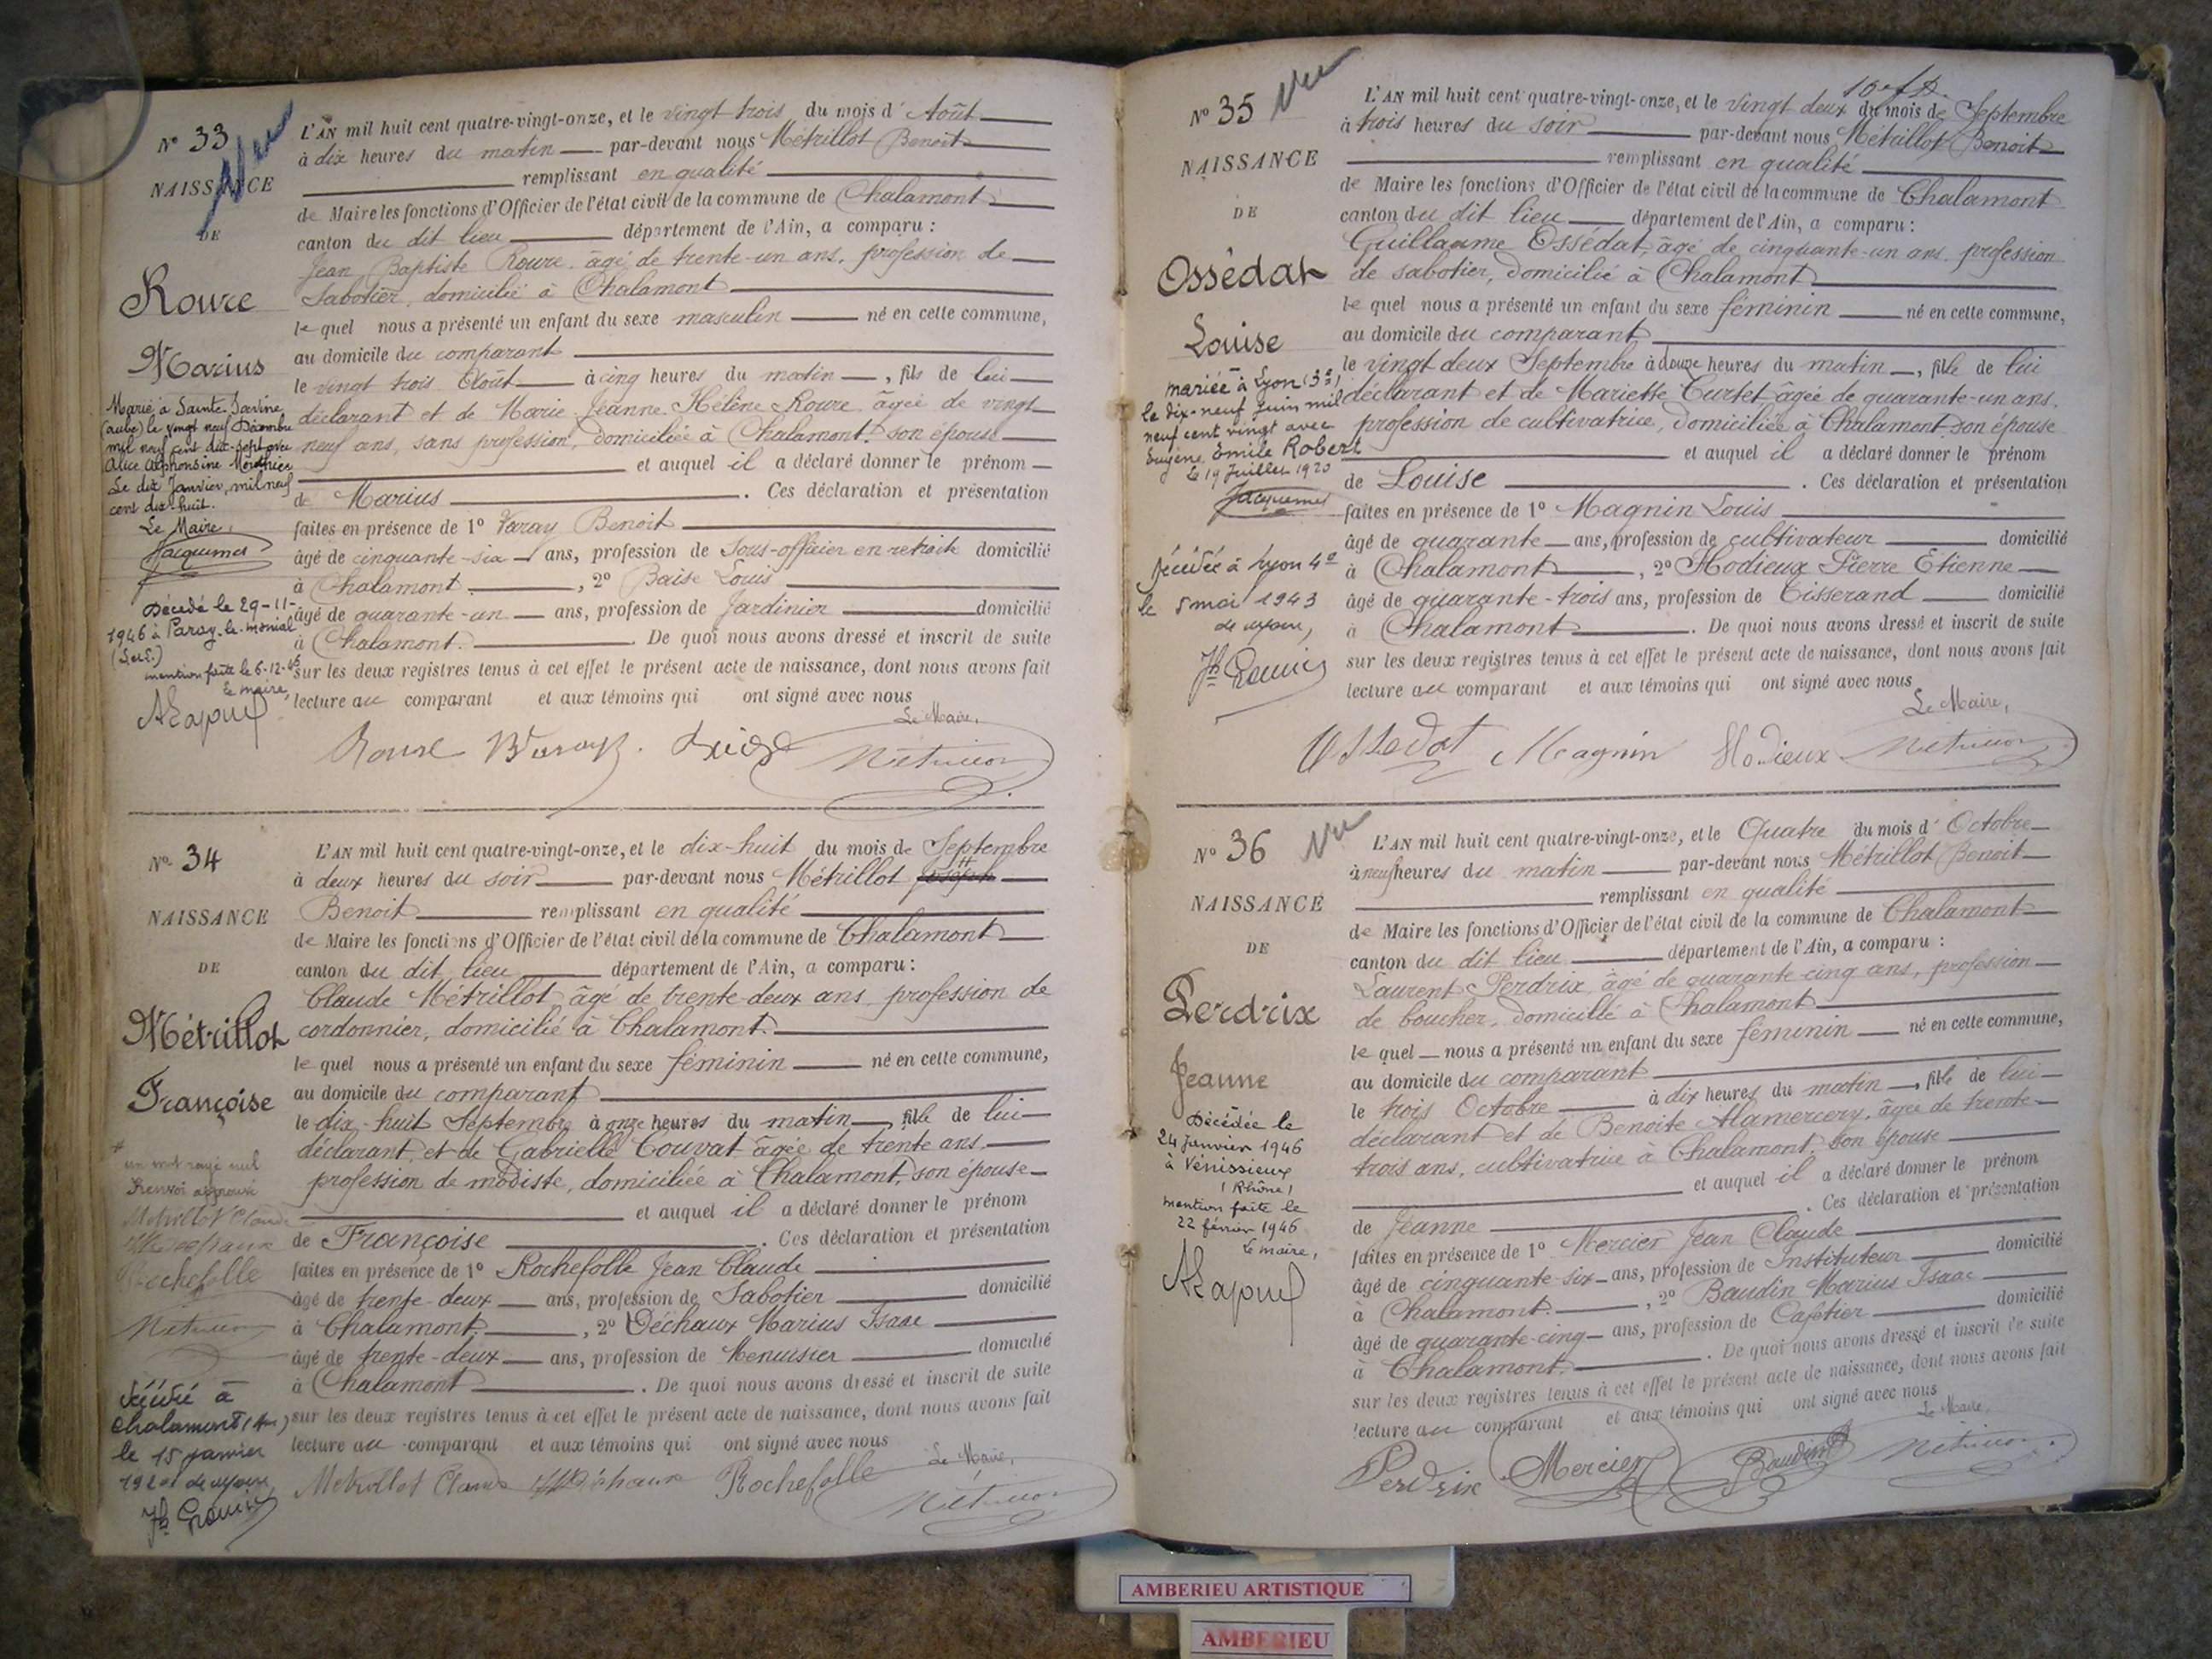 N° 33
Vu
NAISSANCE
DE
Roure
Marius
Marié à Sainte-Savine
(aube) le vingt neuf Décembre
mil neuf cent dix-sept avec
Alice Alphonsine
Le dix Janvier, mil neuf
cent dix-huit.
Le Maire,
Jacquemet
Décédé le 29-11-
1946 à Paray-le-monial
(S.et.L.)
mention faite le 6-12-46
le maire,
L'AN mil huit cent quatre-vingt-onze, et le vingt trois du mois d'Août
à dix heures du matin par-devant nous Métrillot Benoit
remplissant en qualité
de Maire les fonctions d'Officier de l'état civil de la commune de Chalamont
canton du dit lieu département de l'Ain, a comparu :
Jean Baptiste Roure, âgé de trente-un ans, profession de
Sabotier, domicilié à Chalamont
le quel nous a présenté un enfant du sexe masculin né en cette commune,
au domicile du comparant
le vingt trois Août à cinq heures du matin, fils de lui
déclarant et de Marie Jeanne Hélène Roure âgée de vingt
neuf ans, sans profession, domiciliée à Chalamont, son épouse
et auquel il a déclaré donner le prénom
de Marius. Ces déclaration et présentation
faites en présence de 1° Varay Benoit
âgé de cinquante-six ans, profession de Sous-officier en retraite domicilié
à Chalamont, 2° Baise Louis
âgé de quarante-un ans, profession de Jardinier domicilié
à Chalamont. De quoi nous avons dressé et inscrit de suite
sur les deux registres tenus à cet effet le présent acte de naissance, dont nous avons fait
lecture au comparant et aux témoins qui ont signé avec nous
Le Maire,
Roure
Métrillot
N° 34
NAISSANCE
DE
Métrillot
Françoise
un mot rayé nul
Renvoi approuvé
Métrillot Claude
Rochefolle
Métrillot
Chalamont (Ain)
le 15 janvier
L'AN mil huit cent quatre-vingt-onze, et le dix-huit du mois de Septembre
à deux heures du soir par-devant nous Métrillot Joseph
Benoit remplissant en qualité
de Maire les fonctions d'Officier de l'état civil de la commune de Chalamont
canton du dit lieu département de l'Ain, a comparu :
Claude Métrillot, âgé de trente-deux ans, profession de
cordonnier, domicilié à Chalamont
le quel nous a présenté un enfant du sexe féminin né en cette commune,
au domicile du comparant
le dix-huit Septembre à onze heures du matin, fille de lui
déclarant et de Gabrielle Couvat âgée de trente ans,
profession de modiste, domiciliée à Chalamont, son épouse
et auquel il a déclaré donner le prénom
de Françoise. Ces déclaration et présentation
faites en présence de 1° Rochefolle Jean Claude
âgé de trente-deux ans, profession de Sabotier domicilié
à Chalamont, 2° Déchaux Marius Isaac
âgé de trente-deux ans, profession de Menuisier domicilié
à Chalamont. De quoi nous avons dressé et inscrit de suite
sur les deux registres tenus à cet effet le présent acte de naissance, dont nous avons fait
lecture au comparant et aux témoins qui ont signé avec nous
Le Maire,
Métrillot Claude Déchaux Rochefolle Métrillot
N° 35
Vu
NAISSANCE
DE
Ossédat
Louise
mariée à Lyon (3e)
le dix-neuf Juin mil
neuf cent vingt avec
Eugène Emile Robert
le 19 Juillet 1920
Jacquemet
Décédée à Lyon 4e
le 5 mai 1943
L'AN mil huit cent quatre-vingt-onze, et le vingt deux du mois de Septembre
à trois heures du soir par-devant nous Métrillot Benoit
remplissant en qualité
de Maire les fonctions d'Officier de l'état civil de la commune de Chalamont
canton du dit lieu département de l'Ain, a comparu :
Guillaume Ossédat, âgé de cinquante-un ans, profession
de sabotier, domicilié à Chalamont
le quel nous a présenté un enfant du sexe féminin né en cette commune,
au domicile du comparant
le vingt deux Septembre à douze heures du matin, fille de lui
déclarant et de Mariette Curtet âgée de quarante-un ans,
profession de cultivatrice, domiciliée à Chalamont, son épouse
et auquel il a déclaré donner le prénom
de Louise. Ces déclaration et présentation
faites en présence de 1° Magnin Louis
âgé de quarante ans, profession de cultivateur domicilié
à Chalamont, 2° Hodieux Pierre Etienne
âgé de quarante-trois ans, profession de Tisserand domicilié
à Chalamont. De quoi nous avons dressé et inscrit de suite
sur les deux registres tenus à cet effet le présent acte de naissance, dont nous avons fait
lecture au comparant et aux témoins qui ont signé avec nous
Le Maire,
Ossedat Magnin Hodieux Métrillot
N° 36
Vu
NAISSANCE
DE
Perdrix
Jeanne
Décédée le
24 Janvier 1946
à Vénissieux
(Rhône)
mention faite le
22 février 1946
le maire,
L'AN mil huit cent quatre-vingt-onze, et le Quatre du mois d'Octobre
à neuf heures du matin par-devant nous Métrillot Benoit
remplissant en qualité
de Maire les fonctions d'Officier de l'état civil de la commune de Chalamont
canton du dit lieu département de l'Ain, a comparu :
Laurent Perdrix, âgé de quarante-cinq ans, profession
de boucher, domicilié à Chalamont
le quel nous a présenté un enfant du sexe féminin né en cette commune,
au domicile du comparant
le trois Octobre à dix heures du matin, fille de lui
déclarant et de Benoite Alamercery, âgée de trente
trois ans, cultivatrice à Chalamont, son épouse
et auquel il a déclaré donner le prénom
de Jeanne. Ces déclaration et présentation
faites en présence de 1° Mercier Jean Claude
âgé de cinquante-six ans, profession de Instituteur domicilié
à Chalamont, 2° Baudin Marius Isaac
âgé de quarante-cinq ans, profession de Cafetier domicilié
à Chalamont. De quoi nous avons dressé et inscrit de suite
sur les deux registres tenus à cet effet le présent acte de naissance, dont nous avons fait
lecture au comparant et aux témoins qui ont signé avec nous
Le Maire,
Perdrix Mercier Baudin Métrillot
AMBERIEU ARTISTIQUE
AMBERIEU